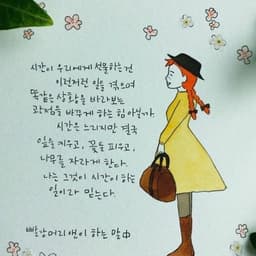 시간이 우리에게 선물하는건
이런저런 일을 겪으며
똑같은 상황을 바라보는
관점을 바꾸게 하는 힘 아닐까.
시간은 느리지만 결국
잎을 키우고, 꽃을 피우고,
나무를 자라게 한다.
나는 그것이 시간이 하는
일이라 믿는다.
빨강머리앤이 하는 말 中